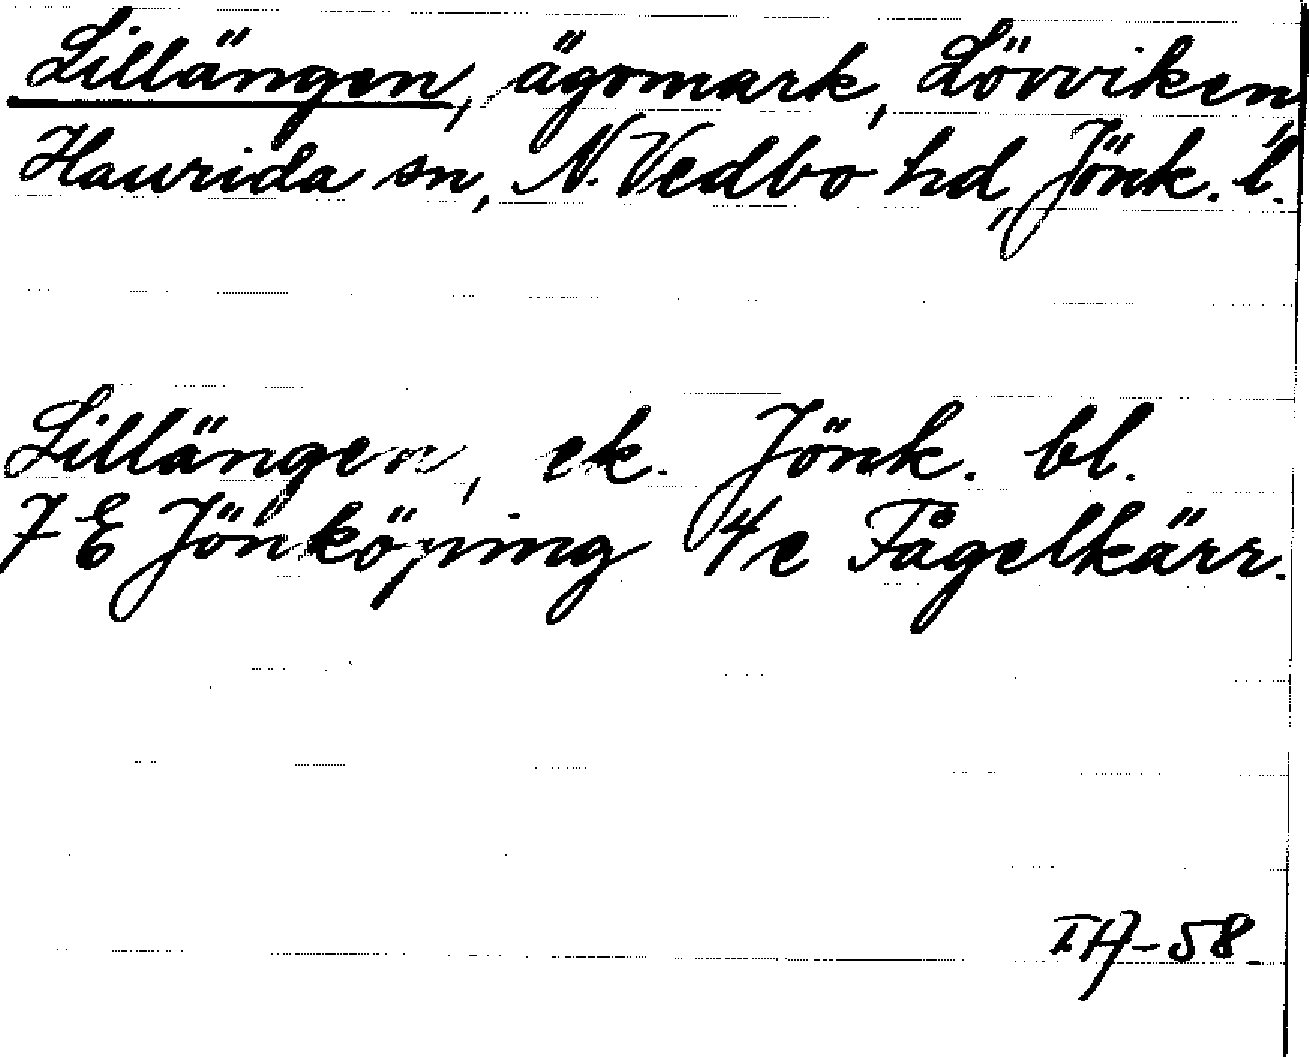 Lillängen, ägomark, Lövviken
Haurida sn, N. Vedbo hd, Jönk. l.
Lillängen, ek. Jönk. bl.
7 E Jönköping 4e Fågelkärr.
IH-58